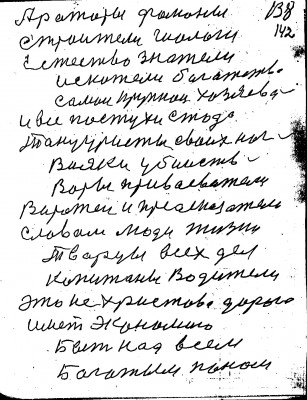 Ораторы фараоны 138
Строители геологи 142
Естество знатели
искатели богатств
самой крупной хозяева
и все пастухи стада
Танцуристы своих ног
Вояки убийств
Воры приваеватели
Виратеи и предсказатели
Словам моды жизни
Творцы всех дел
капитаны водители
Это не христова дорога
имет экономию
Бьет над всем
Богатым паном